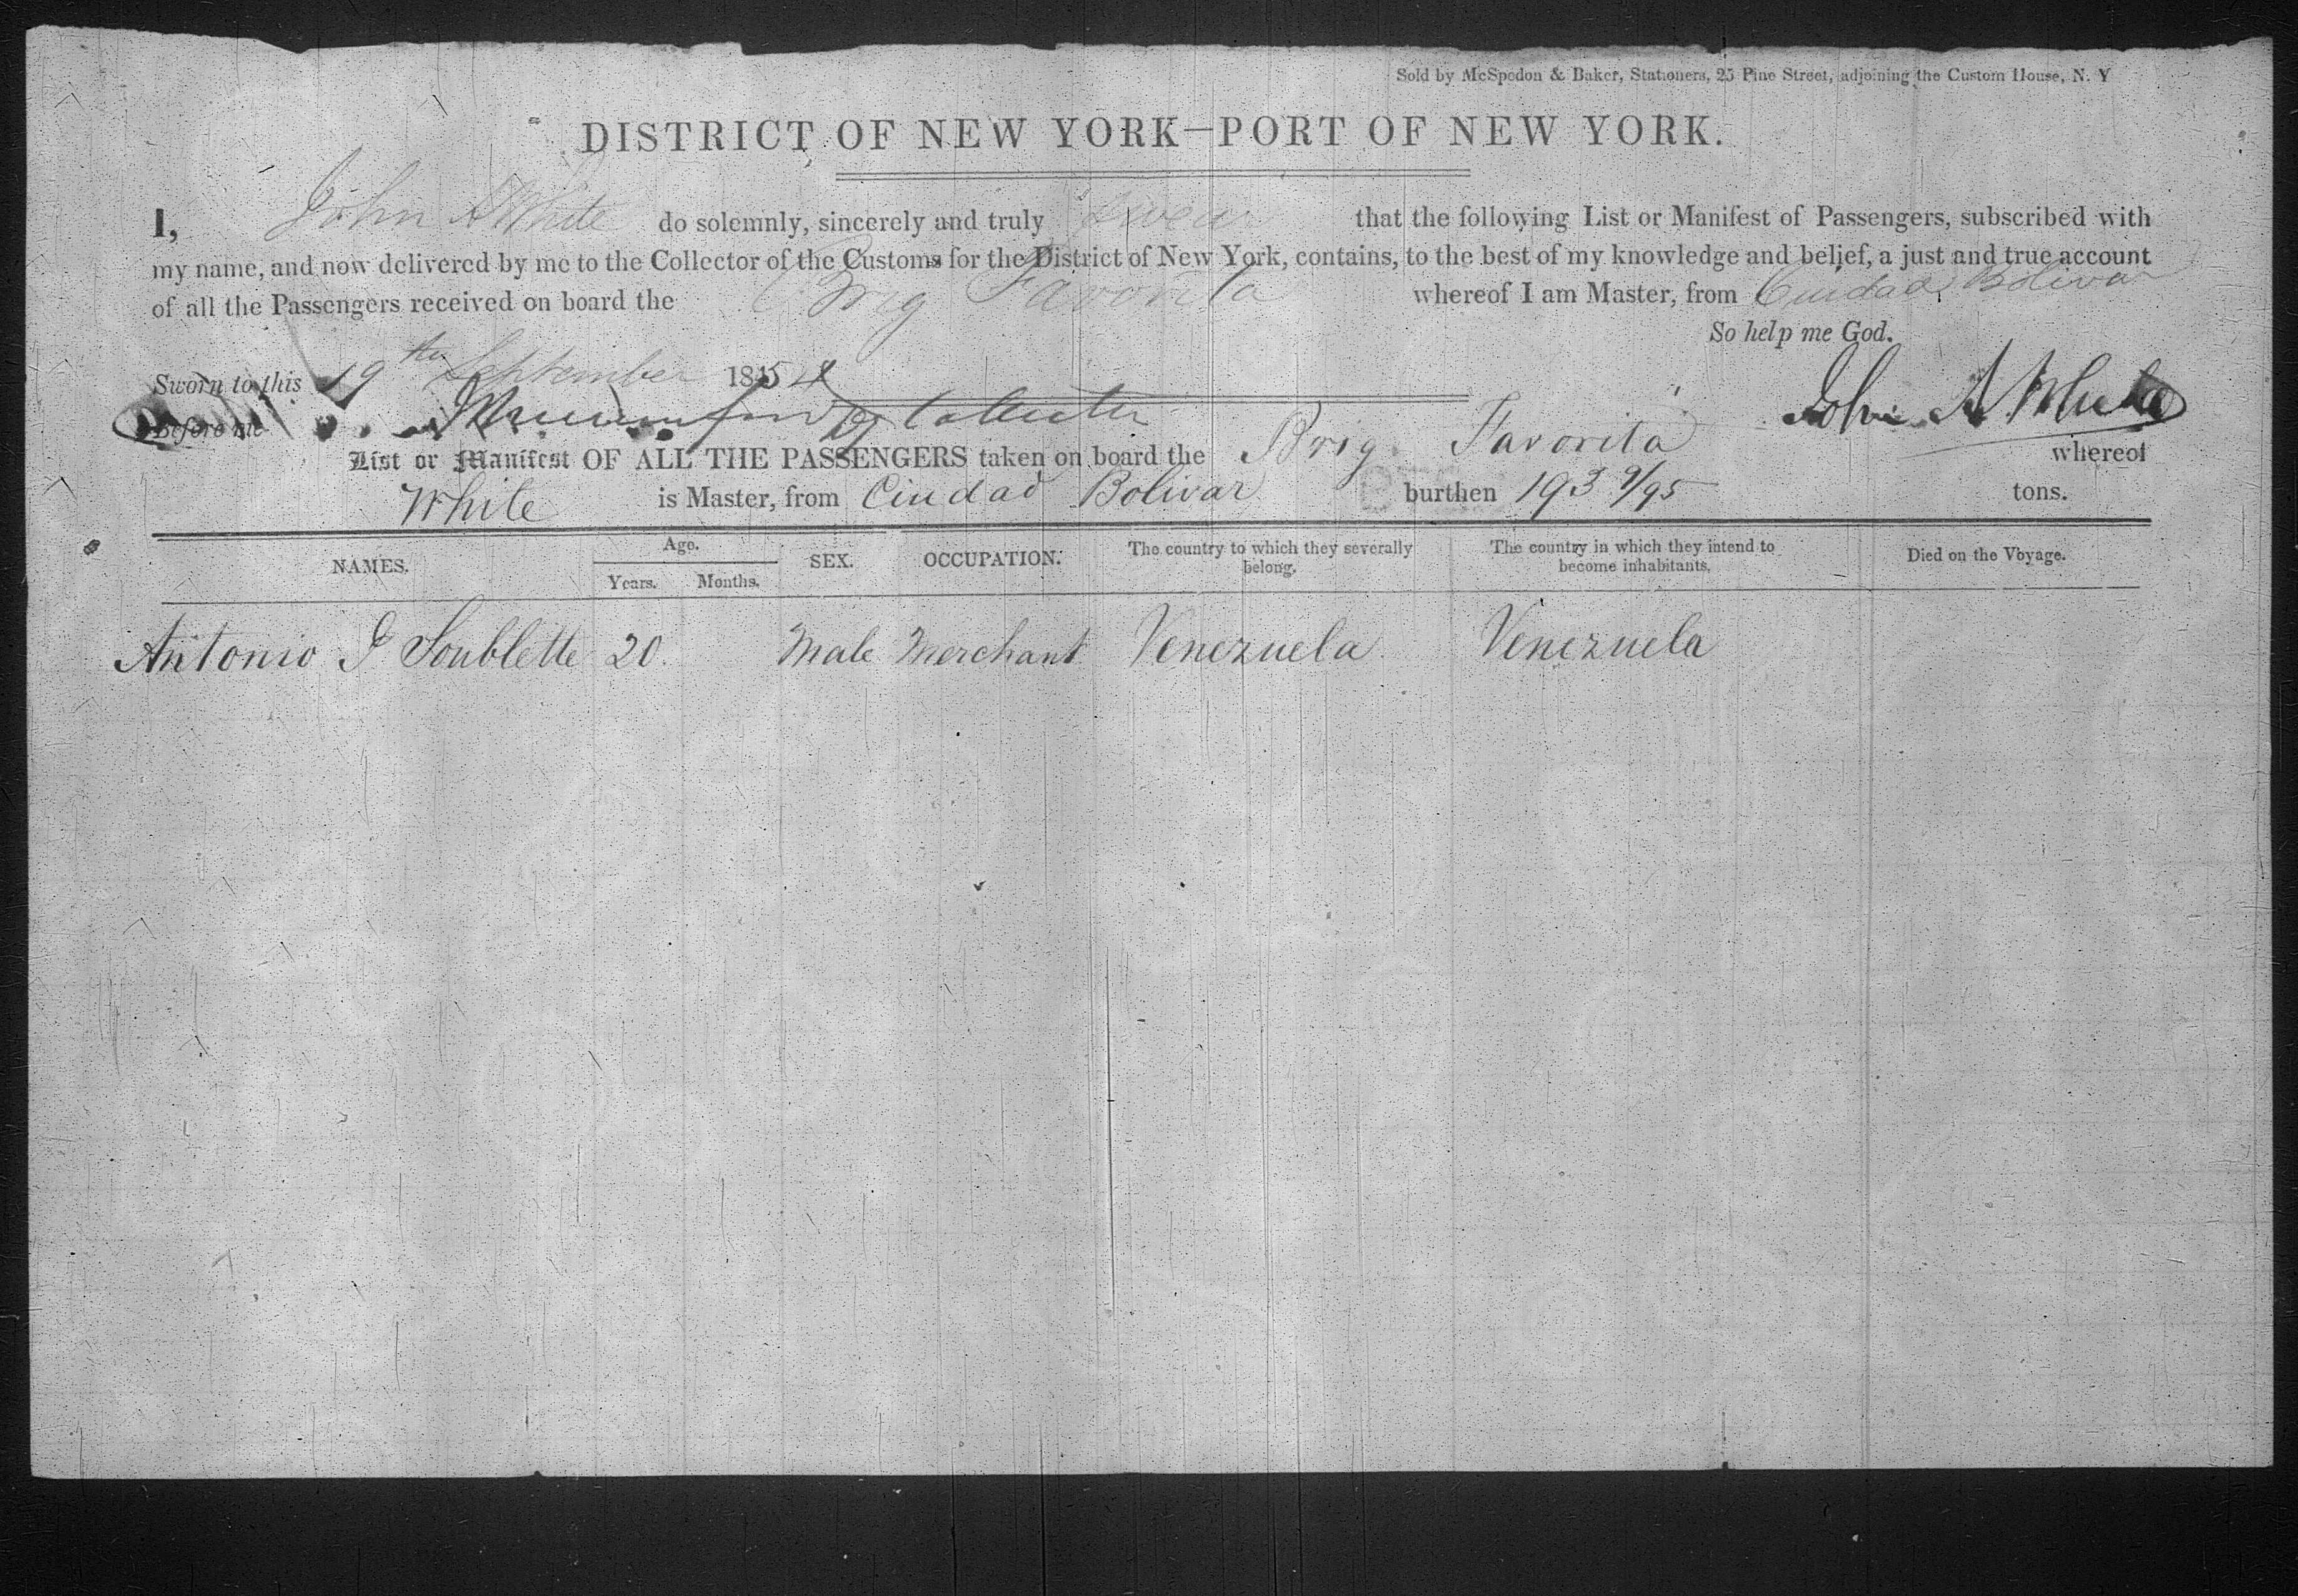 Sold by McSpedon & Baker, Stationers, 25 Pine Street, adjoining the Custom House, N. Y
DISTRICT OF NEW YORK—PORT OF NEW YORK.
I, John A White do solemnly, sincerely and truly swear that the following List or Manifest of Passengers, subscribed with
my name, and now delivered by me to the Collector of the Customs for the District of New York, contains, to the best of my knowledge and belief, a just and true account
of all the Passengers received on board the Brig Favorita whereof I am Master, from Ciudad Bolivar
So help me God.
Sworn to this 19th September 1854
Before me John A White
List or Manifest OF ALL THE PASSENGERS taken on board the Brig Favorita whereof
White is Master, from Ciudad Bolivar burthen 193 9/95 tons.
NAMES. Age. SEX. OCCUPATION. The country to which they severally belong. The country in which they intend to become inhabitants. Died on the Voyage.
Years. Months.
Antonio J Soublette 20 Male Merchant Venezuela Venezuela